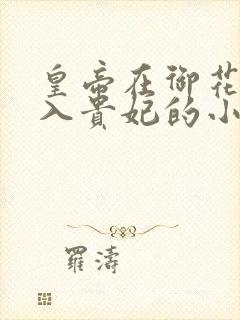 皇帝在御花
入贵妃的小
羅濤